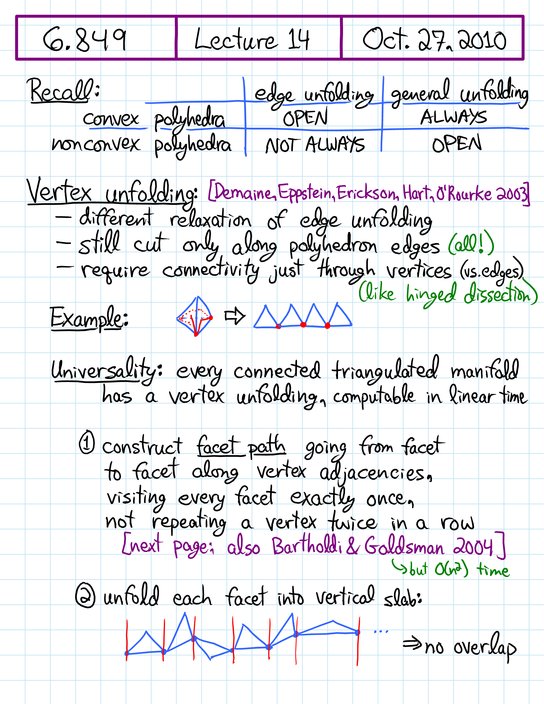 6.849 Lecture 14 Oct. 27, 2010
Recall: edge unfolding general unfolding
convex polyhedra OPEN ALWAYS
nonconvex polyhedra NOT ALWAYS OPEN
Vertex unfolding: [Demaine, Eppstein, Erickson, Hart, O'Rourke 2003]
— different relaxation of edge unfolding
— still cut only along polyhedron edges (all!)
— require connectivity just through vertices (vs. edges)
(like hinged dissection)
Example: ⇨
Universality: every connected triangulated manifold
has a vertex unfolding, computable in linear time
① construct facet path going from facet
to facet along vertex adjacencies,
visiting every facet exactly once,
not repeating a vertex twice in a row
[next page; also Bartholdi & Goldsman 2004]
↳ but O(n²) time
② unfold each facet into vertical slab:
... ⇒ no overlap